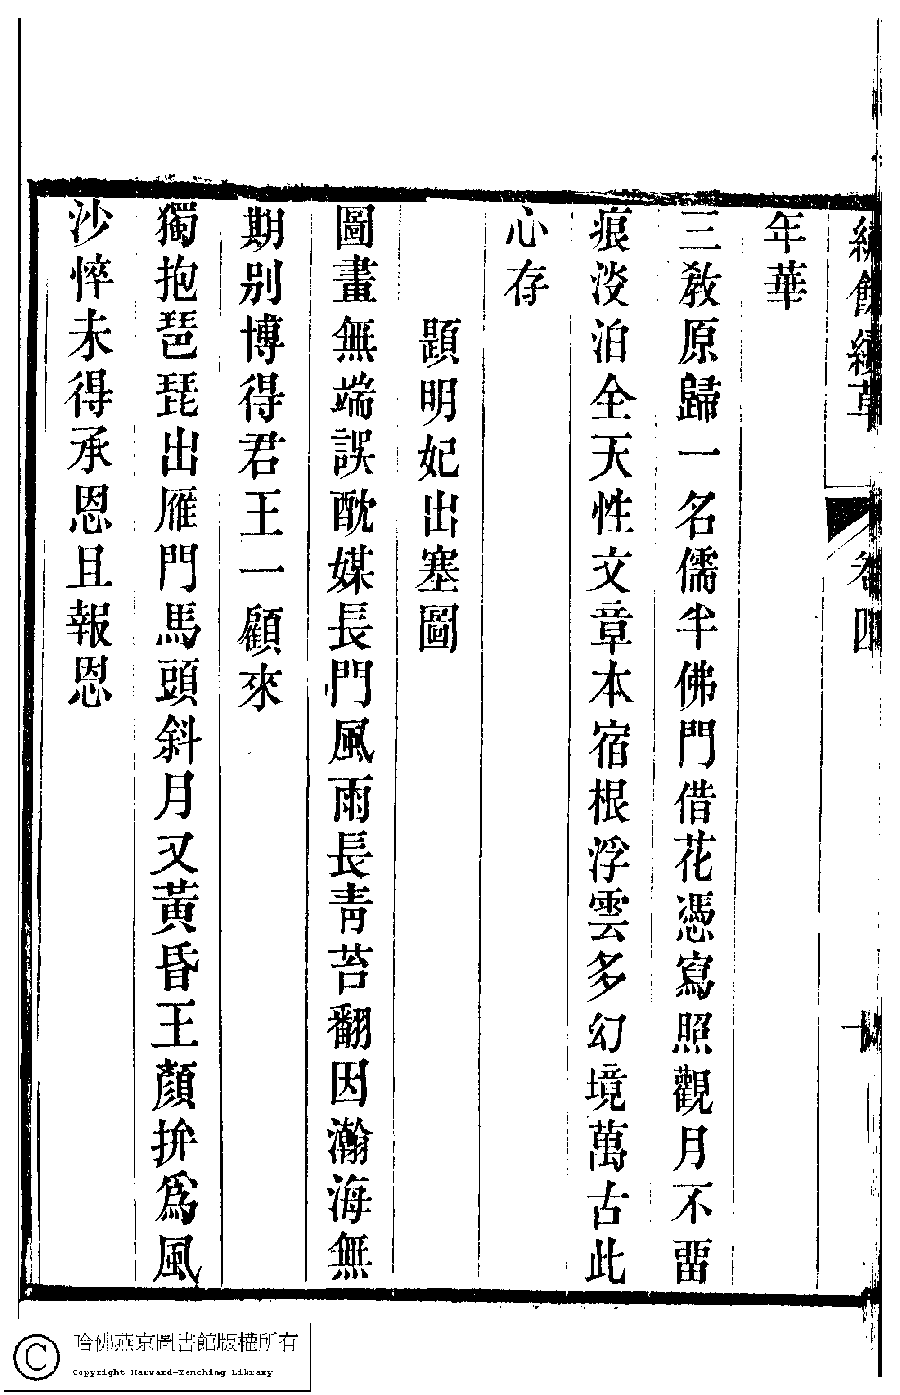 繡餘續草 卷四 十
年華
三敎原歸一名儒半佛門借花憑寫照觀月不畱
痕淡泊全天性文章本宿根浮雲多幻境萬古此
心存
題明妃出塞圖
圖畫無端誤酖媒長門風雨長靑苔翻因瀚海無
期别博得君王一顧來
獨抱琶琵出雁門馬頭斜月又黃昏王顏拚爲風
沙悴未得承恩且報恩
哈佛燕京圖書館版權所有
Copyright Harvard-Yenching Library